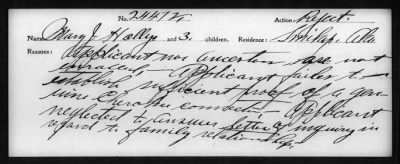 No. 24412. Action: Reject.
Name: Mary J. and 3. children. Residence: Ala
Reasons: Applicant nor ancestor not
enrolled. Applicant failes to
establish sufficient proof of a gen-
uine Cherokee connection. Applicant
neglected to answer letter of inquiry in
regard to family relationship.